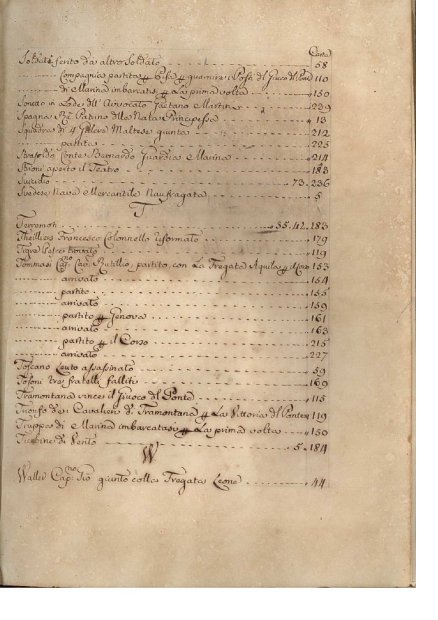 Carta
Soldato ferito da altro Soldato 58
Compagnia partita p Pisa p guarnire i Posti del Giuoco del Ponte 110
di Marina imbarcata p La prima volta 150
Sonetto in Lode dell' Avvocato Gaetano Martini 239
Spagna Rè Nata Principessa 13
Squadra di 4 Maltese giunta 212
partita 225
Conte Bernardo Guardia Marina 214
aperto il Teatro 183
Suicidio 73. 236
Svedese Nave Mercantile Naufragata 5
T
Terremoti 35. 42. 183
Francesco Colonnello riformato 179
119
Tommasi Cap.no Cav. Rutilio, partito, con La Fregata Aquila p il Corso 153
arrivato 154
partito 155
arrivato 159
partito p Genova 161
arrivato 163
partito p il Corso 215
arrivato 227
Toscano assassinato 59
Tosoni tre fratelli falliti 169
Tramontana vince il Giuoco del Ponte 115
Trionfo dei Cavalieri di Tramontana p La Vittoria del Ponte 119
Truppa di Marina imbarcatasi p La prima volta 150
Turbine di Vento 5. 184
W
Waller Cap.no giunto colla Fregata Leone 44